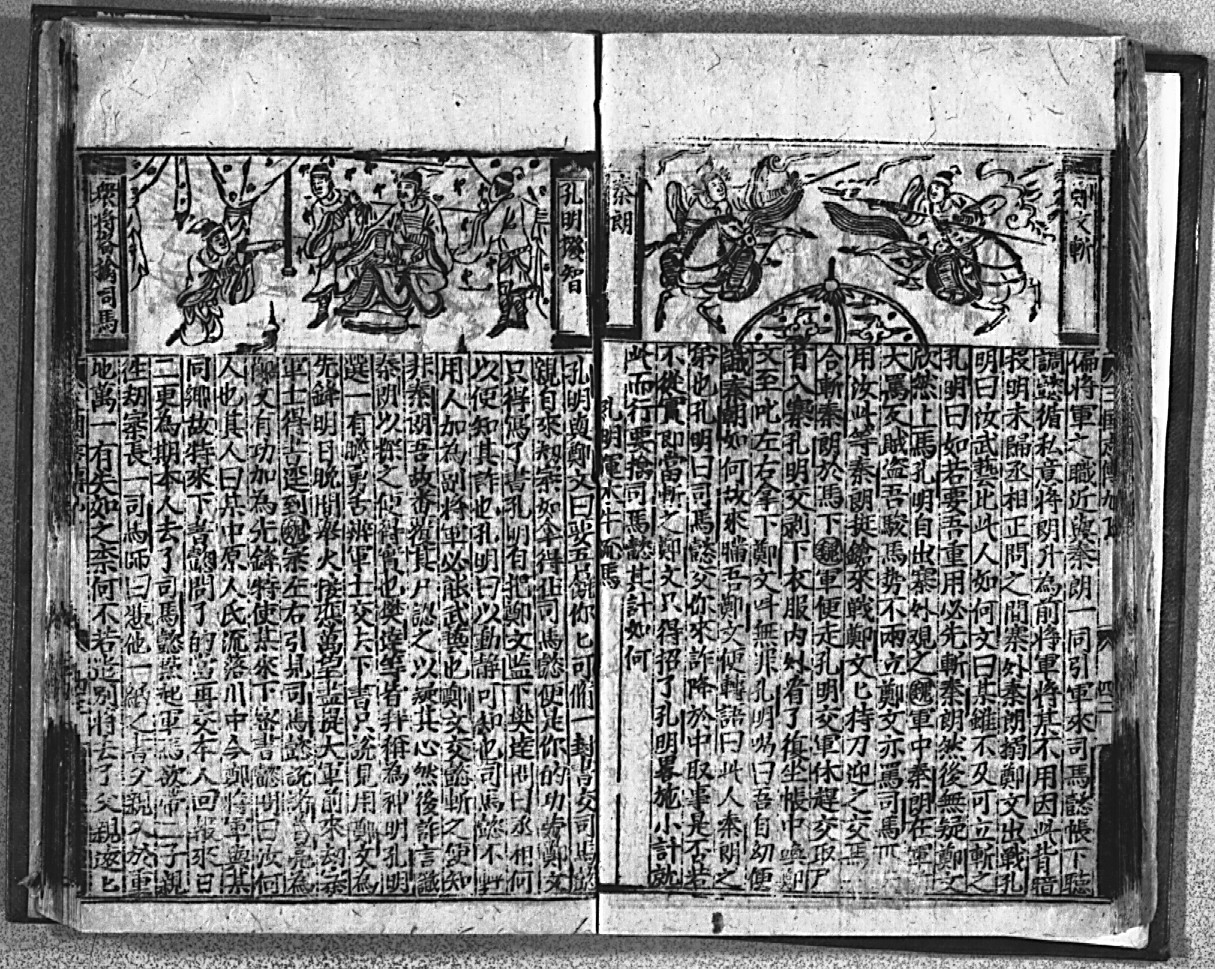 鄭文斬
秦朗
偏將軍之職近與秦朗一同引軍來司馬懿帳下聽
調懿循私意將朗升為前將軍將某不用因此背
投明未歸丞相正問之間寨外秦朗搦鄭文出戰孔
明曰汝武藝比此人如何文曰某雖不及可立斬之
孔明曰如若要吾重用必先斬秦朗然後無疑鄭文
欣然上馬孔明自出寨外觀之魏軍中秦朗在軍
大罵反賊盗吾駿馬勢不兩立鄭文亦罵司馬
用汝此等秦朗挺鎗來戰鄭文匕持刀迎之交馬
合斬秦朗於馬下魏軍便走孔明交軍休趕交取尸
首入寨孔明交剥下衣服内外看了復坐帳中喚鄭
文至叱左右拿下鄭文呌無罪孔明喝曰吾自幼便
識秦朗如何故來瞞吾鄭文便轉語曰此人秦朗之
弟也孔明曰司馬懿交你來詐降於中取事是否若
不從實即當斬之鄭文只得招了孔明畧施小計就
此而行要擒司馬懿其計如何
孔明運木牛流馬
三國志傳
孔明發智
衆將論司馬
孔明與鄭文曰要吾饒你匕可脩一封書交司馬懿
親自來刼寨如拿得住司馬懿便是你的功勞鄭文
只得寫了書孔明自把鄭文監下樊達問曰丞相何
以便知其詐也孔明曰以動静可知也司馬懿不輕
用人加為副將軍必能武藝也鄭文交懿斬之便知
非秦朗吾故番覆其尸認之以疑其心然後詐言識
秦朗以探之便得實也樊達等皆拜稱為神明孔明
選一有膽勇舌辨軍士交去下書只說見用鄭文為
先鋒明日晚間舉火接應萬望盡提大軍前來刼寨
軍士得書逕到魏寨左右引見司馬懿說諸葛亮為
鄭文有功加為先鋒特使某來下密書懿明曰汝何
人也其人曰某中原人氏流落川中今鄭將軍與某
同鄉故特來下書懿問了的當再交本人回報來日
二更為期本人去了司馬懿點起軍馬欲帶二子親
往刼寨長子司馬師曰憑他一紙之書父親入於重
地萬一有失如之奈何不若遣別將去了父親後匕